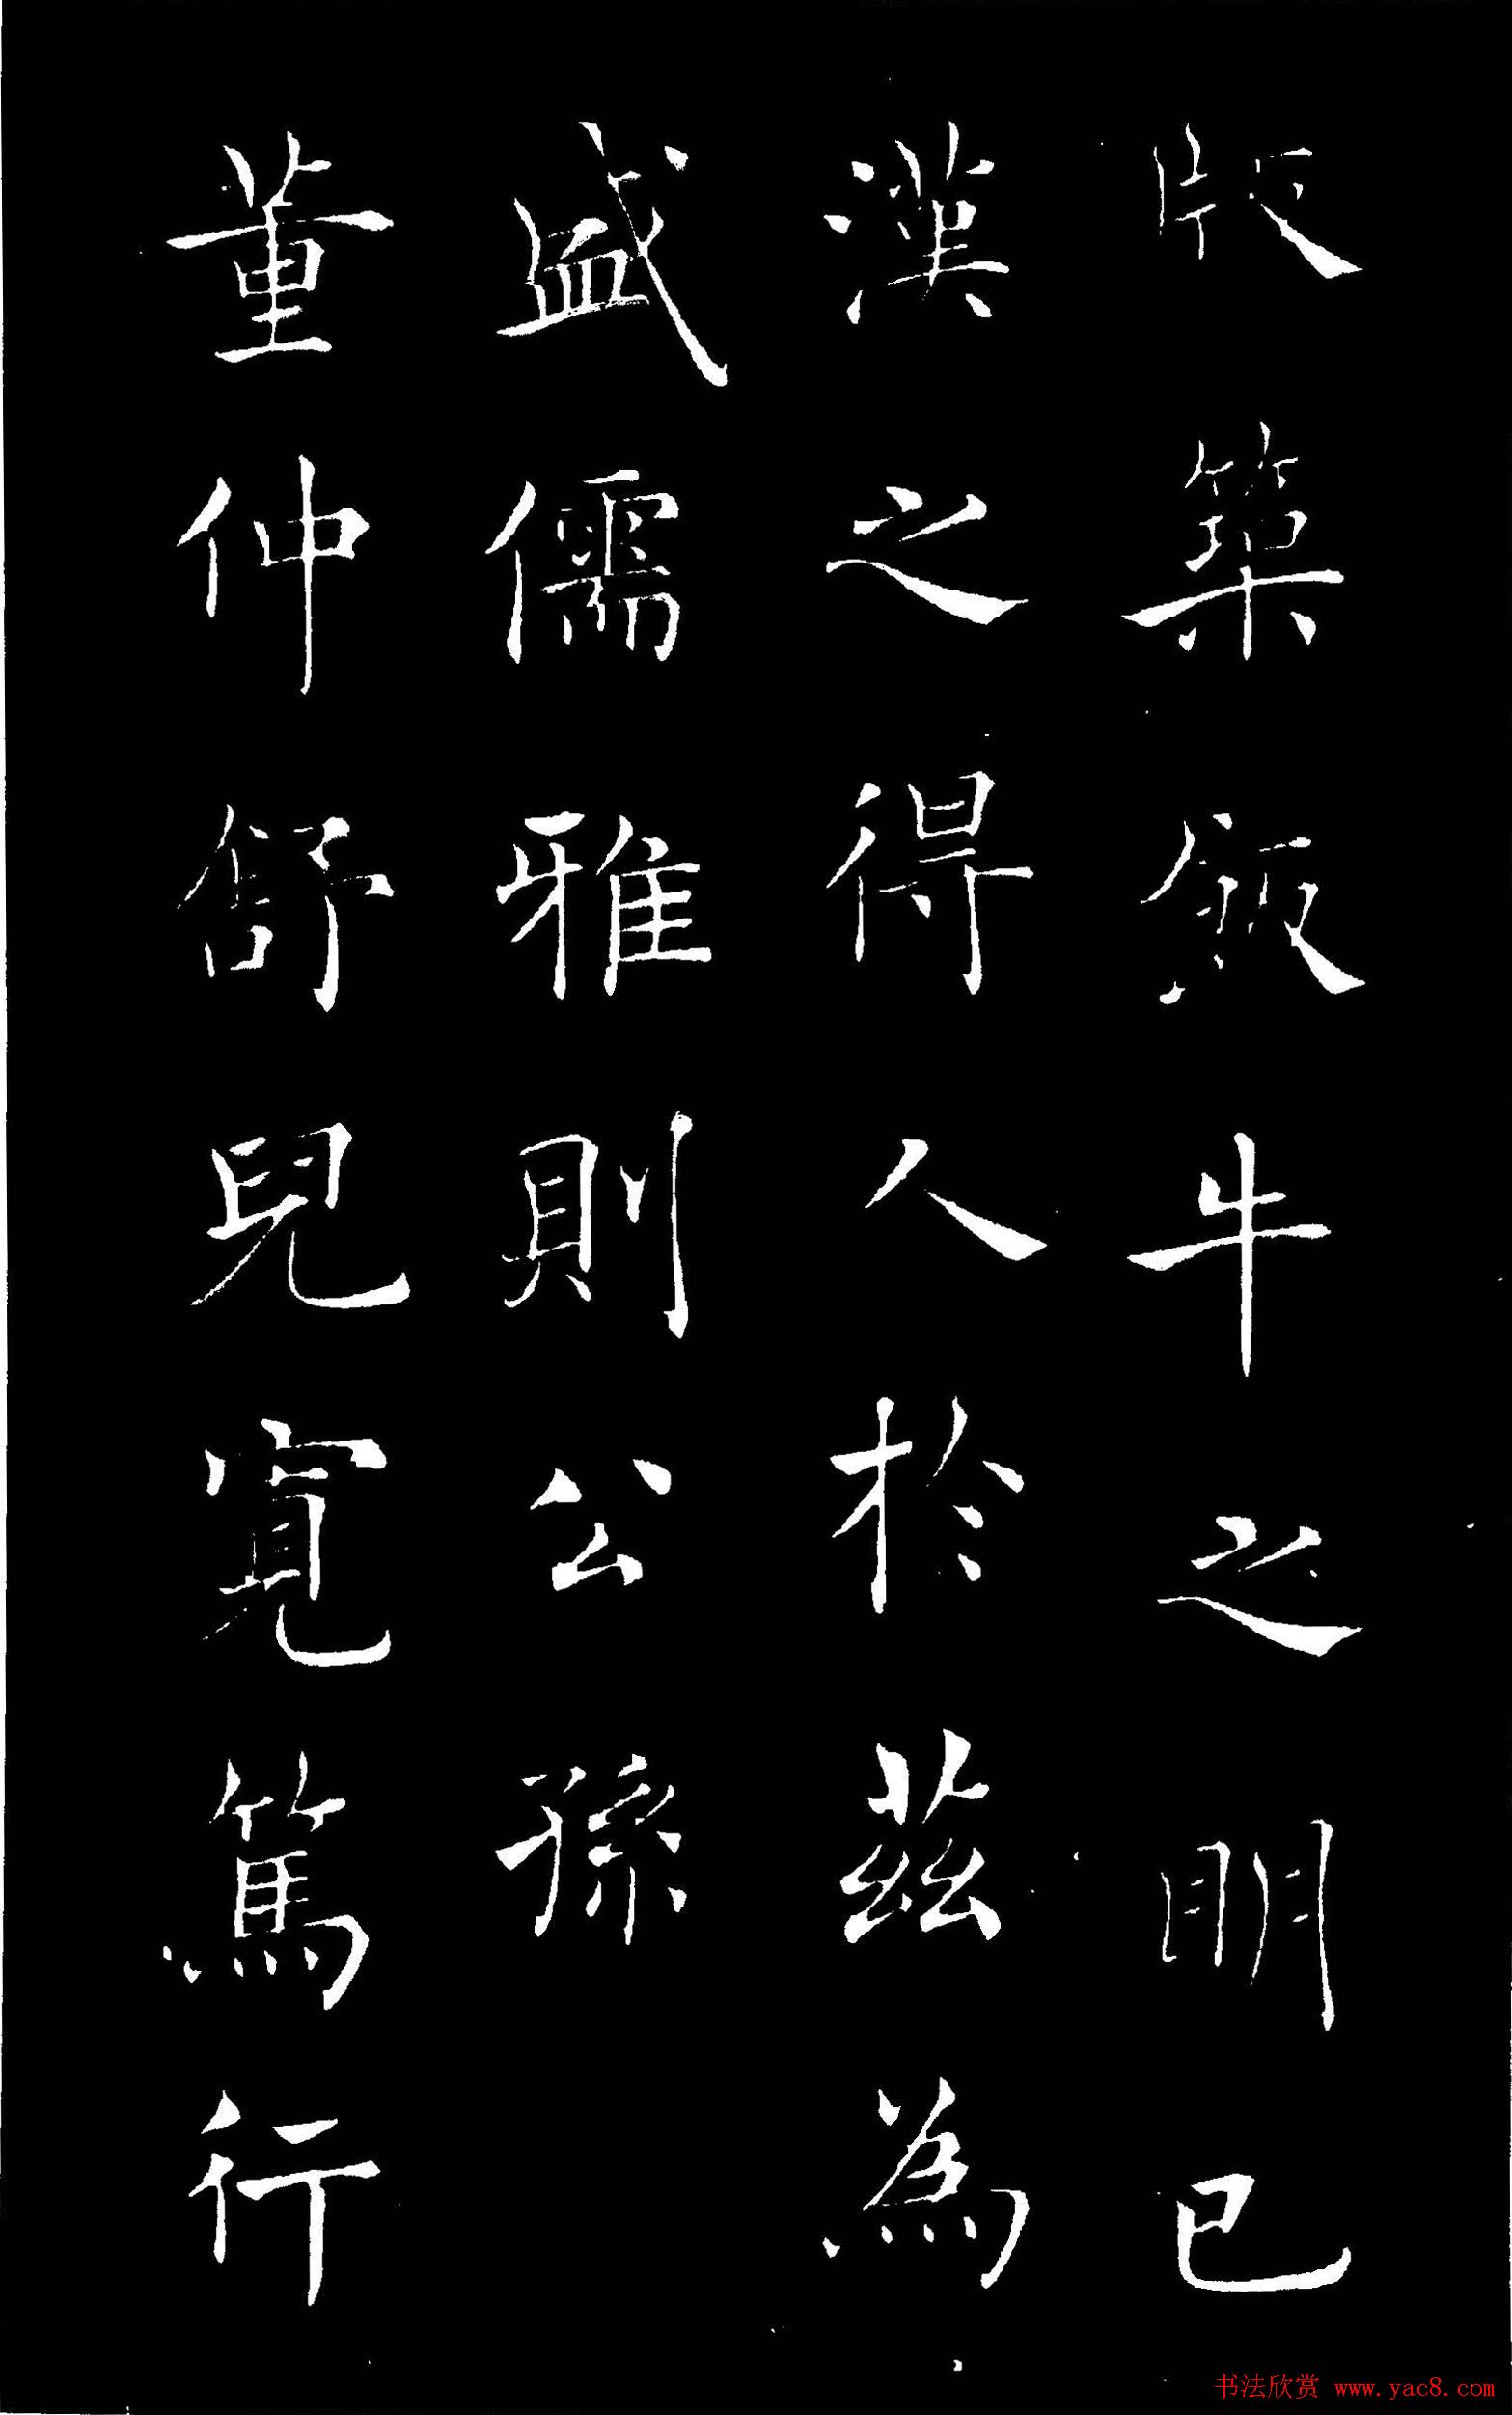 版築飯牛之明已
漢之得人於茲為
盛儒雅則公孫
董仲舒兒寬篤行
书法欣赏 www.yac8.com